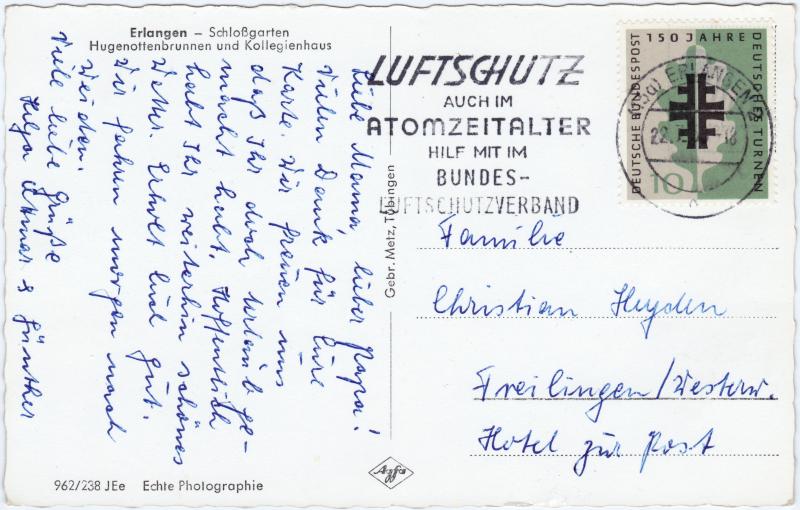 Erlangen – Schloßgarten
Hugenottenbrunnen und Kollegienhaus
Liebe Mama, lieber Papa!
Vielen Dank für Eure
Karte. Wir freuen uns
daß Ihr doch Urlaub ge-
macht habt. Hoffentlich
habt Ihr weiterhin schönes
Wetter. Erholt Euch gut.
Wir fahren morgen nach
Weiden.
Viele liebe Grüße
Helga & Günther
LUFTSCHUTZ
AUCH IM
ATOMZEITALTER
HILF MIT IM
BUNDES-
LUFTSCHUTZVERBAND
ERLANGEN
DEUTSCHE BUNDESPOST
150 JAHRE
DEUTSCHES TURNEN
10
Familie
Christian Heyden
Freilingen/Westerw.
Hotel zur Post
Gebr. Metz, Tübingen
Agfa
962/238 JEe Echte Photographie